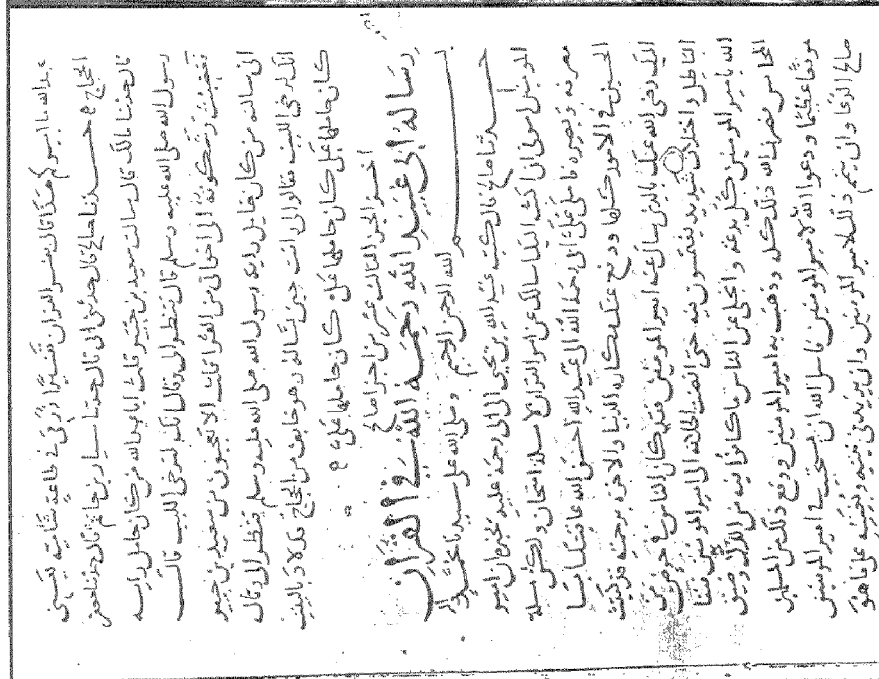 هذا قال
الحجاج ه حدثنا صالح قال حدثني ابي قال حدثنا سيار بن حاتم قال حدثنا جعفر
قال حدثنا مالك قال سالت سعيد بن جبير قلت ابا عبدالله من كان حامل راية
رسول الله صلى الله عليه وسلم قال فنظر الي وقال انك لرخي اللبب قال
فغضبت وشكوته الى اخواني من القراء قلت الا تعجبون من سعيد بن جبير
اني سالته من كان حامل راية رسول الله صلى الله عليه وسلم فنظر الي وقال
انك لرخي اللبب فقالوا لي انت حين تساله وهو خايف من الحجاج قد لاذ بالبيت
كان حاملها علي كان حاملها علي كان حاملها علي ه
اخر الجزء الثالث عشر من اجزاء صالح
رسالة ابي عبد الله رحمه الله في القران
بسم الله الرحمن الرحيم وصلى الله على سيدنا محمد
حدثنا صالح قال كتب عبيد الله بن يحيى الى ابي رحمة عليه يخبره ان امير
المومنين امرني ان اكتب اليك اسالك عن امر القران لا مسلة امتحان ولكن مسلة
معرفة وتبصرة فاملى علي ابي رحمه الله الى عبيد الله احسن الله عاقبتك ابا
الحسن في الامور كلها ودفع عنك مكاره الدنيا والاخرة برحمته قد كتبت
اليك رضي الله عنك بالذي سال عنه امير المومنين قد كان الناس في خوض من
الباطل واختلاف شديد يغتمسون فيه حتى افضت الخلافة الى امير المومنين فنفا
الله بامير المومنين كل بدعة وانجلى عن الناس ما كانوا فيه من الذل وضيق
المحابس فصرف الله ذلك كله وذهب به امير المومنين ووقع ذلك من المسلمين
موقعا عظيما ودعوا الله لامير المومنين فاسل الله ان يستجيب في امير المومنين
صالح الدعا وان يتم ذلك لامير المومنين وان يزيد في نيته ويعينه على ما هو